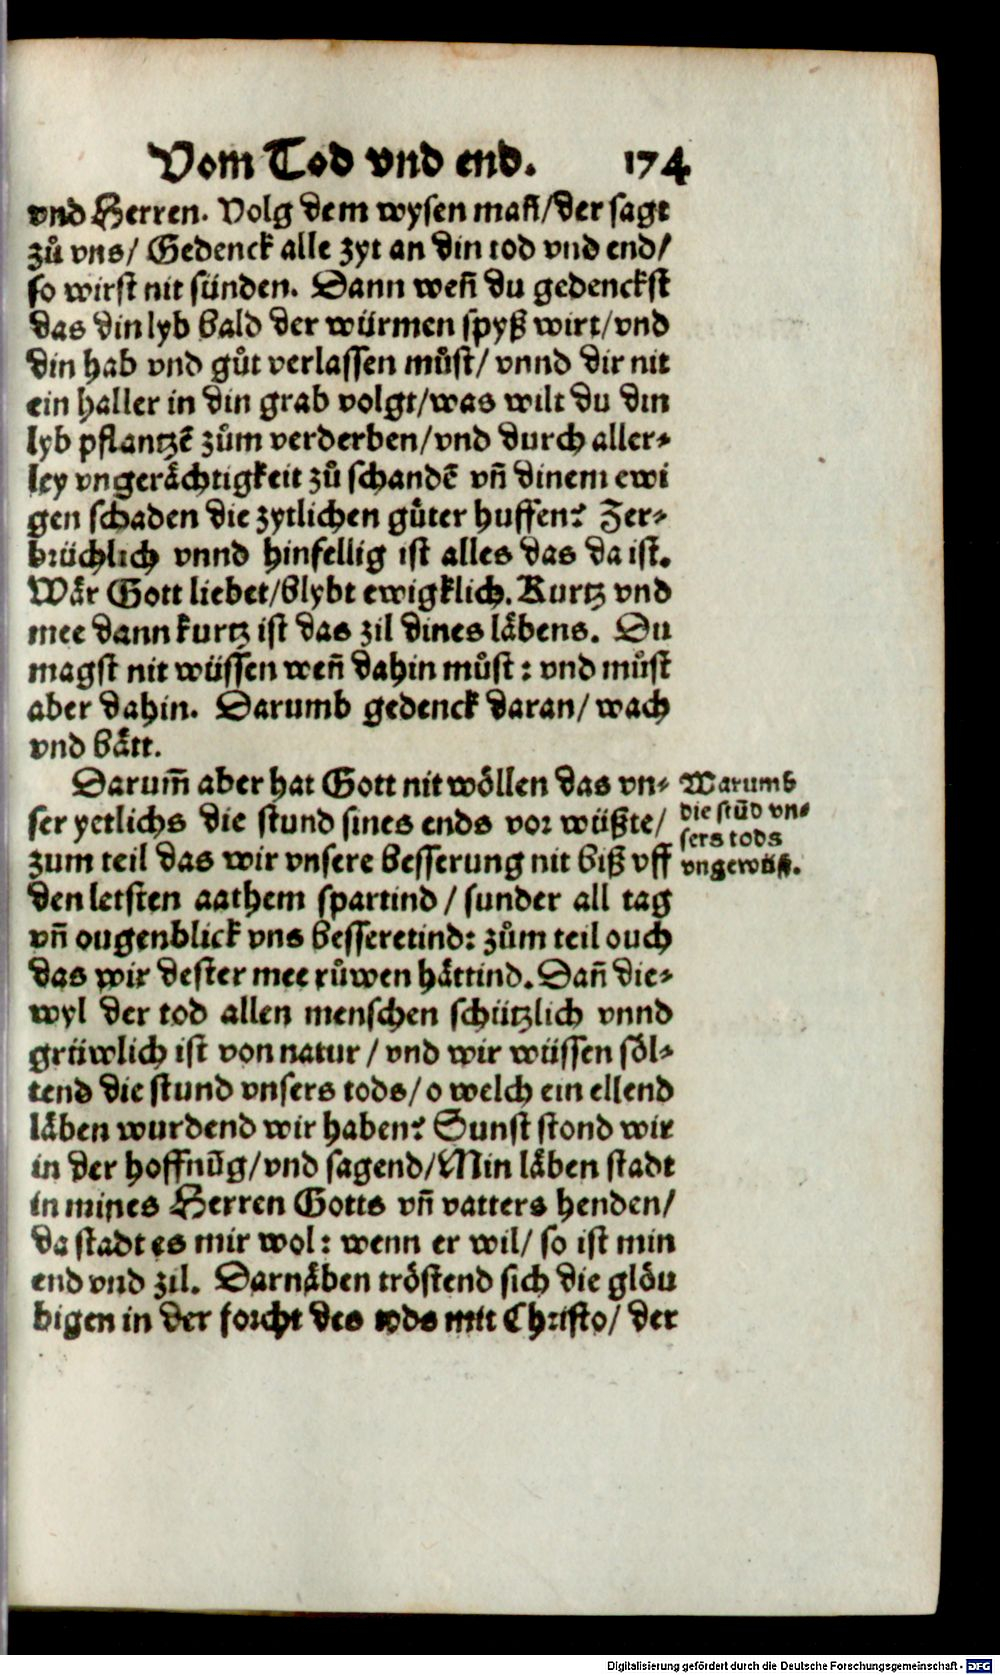 Vom Tod vnd end. 174
vnd Herren. Volg dem wysen mañ/der sagt
zuͦ vns/ Gedenck alle zyt an din tod vnd end/
so wirst nit sünden. Dann weñ du gedenckst
das din lyb bald der würmen spyß wirt/vnd
din hab vnd guͦt verlassen muͦst/ vnnd dir nit
ein haller in din grab volgt/was wilt du din
lyb pflantzẽ zuͦm verderben/vnd durch aller-
ley vngeraͤchtigkeit zuͦ schandẽ vñ dinem ewi
gen schaden die zytlichen guͤter huffen? Zer-
brüchlich vnnd hinfellig ist alles das da ist.
Waͤr Gott liebet/blybt ewigklich. Kurtz vnd
mee dann kurtz ist das zil dines laͤbens. Du
magst nit wüssen weñ dahin muͦst: vnd muͦst
aber dahin. Darumb gedenck daran/ wach
vnd baͤtt.
Darum̃ aber hat Gott nit woͤllen das vn-
ser yetlichs die stund sines ends vor wüßte/
zum teil das wir vnsere besserung nit biß vff
den letsten aathem spartind/ sunder all tag
vñ ougenblick vns besseretind: zuͦm teil ouch
das wir dester mee ruͦwen haͤttind. Dañ die-
wyl der tod allen menschen schützlich vnnd
grüwlich ist von natur/ vnd wir wüssen soͤl-
tend die stund vnsers tods/ o welch ein ellend
laͤben wurdend wir haben? Sunst stond wir
in der hoffnũg/vnd sagend/Min laͤben stadt
in mines Herren Gotts vñ vatters henden/
da stadt es mir wol: wenn er wil/ so ist min
end vnd zil. Darnaͤben troͤstend sich die gloͤu
bigen in der forcht des tods mit Christo/ der
Warumb
die stũd vn-
sers tods
vngewüß.
Digitalisierung gefördert durch die Deutsche Forschungsgemeinschaft - DFG